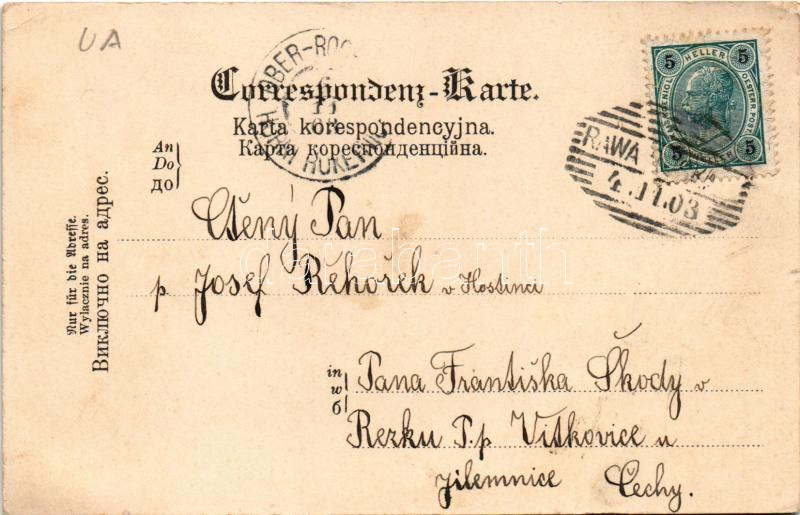 UA
OBER-ROC
HORNÍ ROKETNI
Correspondenz-Karte.
Karta korespondencyjna.
Карта кореспонденційна.
5 HELLER 5
5 5
RAWA
4.11.03
An
Do
до
Nur für die Adresse.
Wyłącznie na adres.
Виключно на адрес.
Ctěný Pan
p. Josef Řehořek v Hostinci
in
w
в
Pana Františka Škody v
Rezku P.p Vitkovice u
Jilemnice Čechy.
darabanth